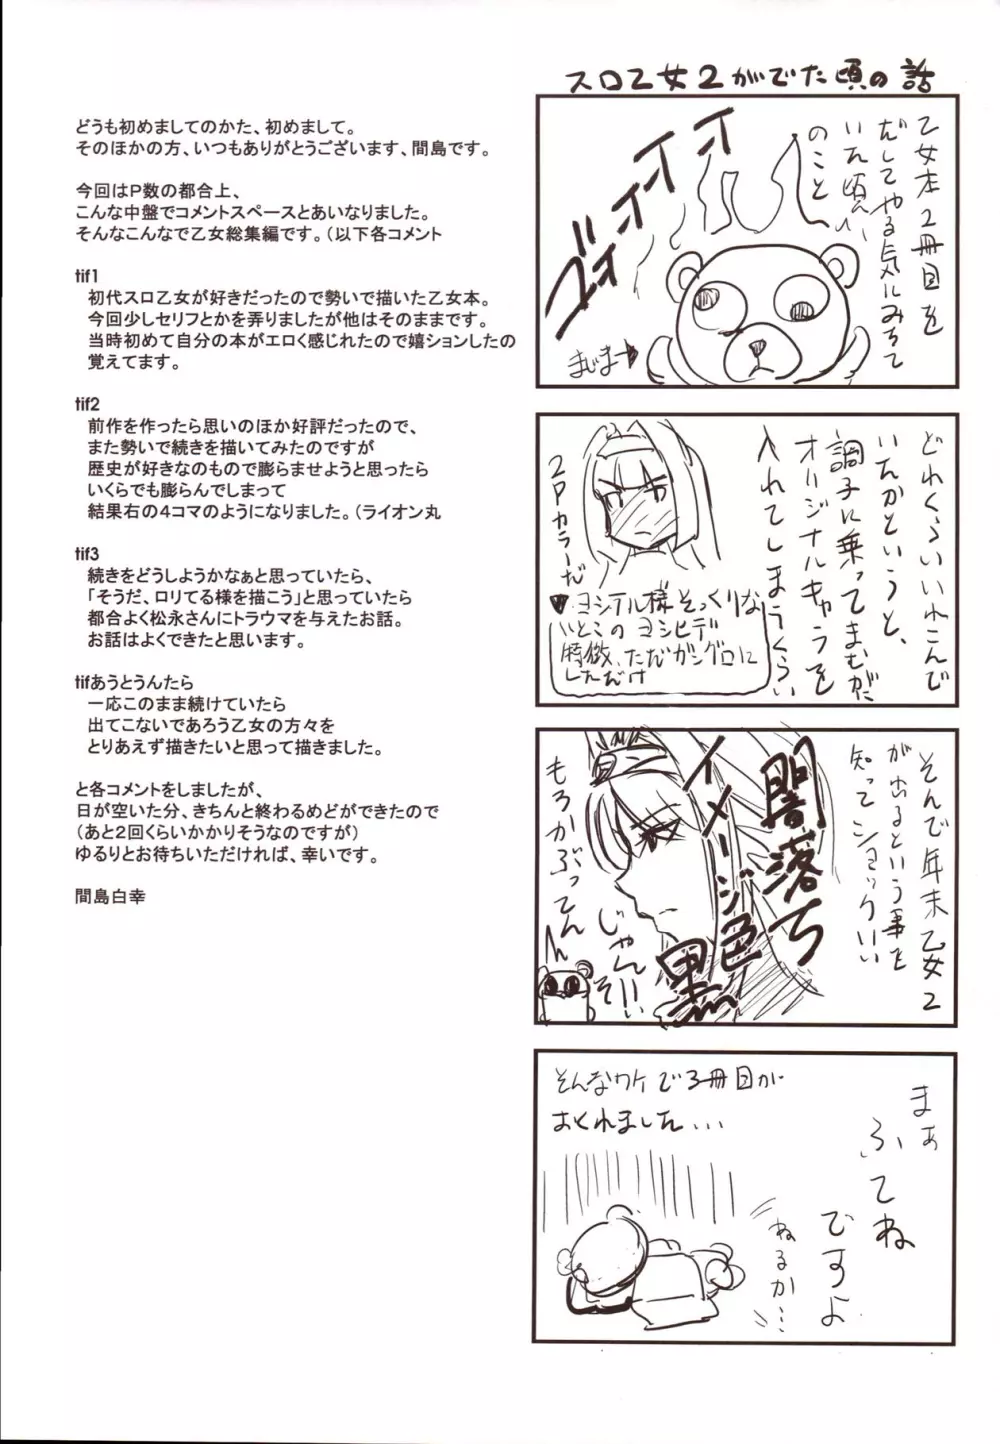 どうも初めましてのかた、初めまして。
そのほかの方、いつもありがとうございます、間島です。
今回はP数の都合上、
こんな中盤でコメントスペースとあいなりました。
そんなこんなで乙女総集編です。（以下各コメント
tif1
初代スロ乙女が好きだったので勢いで描いた乙女本。
今回少しセリフとかを弄りましたが他はそのままです。
当時初めて自分の本がエロく感じれたので嬉ションしたの
覚えてます。
tif2
前作を作ったら思いのほか好評だったので、
また勢いで続きを描いてみたのですが
歴史が好きなのもので膨らませようと思ったら
いくらでも膨らんでしまって
結果右の４コマのようになりました。（ライオン丸
tif3
続きをどうしようかなぁと思っていたら、
「そうだ、ロリてる様を描こう」と思っていたら
都合よく松永さんにトラウマを与えたお話。
お話はよくできたと思います。
tifあうとうんたら
一応このまま続けていたら
出てこないであろう乙女の方々を
とりあえず描きたいと思って描きました。
と各コメントをしましたが、
日が空いた分、きちんと終わるめどができたので
（あと２回くらいかかりそうなのですが）
ゆるりとお待ちいただければ、幸いです。
間島白幸
スロ乙女２がでた頃の話
乙女本２冊目を
だしてやる気にみちて
いた頃
のこと
ズオイオイオイ
まじまー
どれくらいいれこんで
いたかというと、
調子に乗ってまむがに
オリジナルキャラを
入れてしまうくらい
２Pカラーだ
ヨシテル様そっくりな
いとこのヨシヒデ
特徴、ただガングロに
しただけ
そんで年末乙女２
が出るという事を
知ってショックいい
闇落ち
イメージ色
黒
もろかぶってん
じゃん
そんなワケで３冊目が
おくれました...
まぁ
ふてね
ですよ
ねるか...